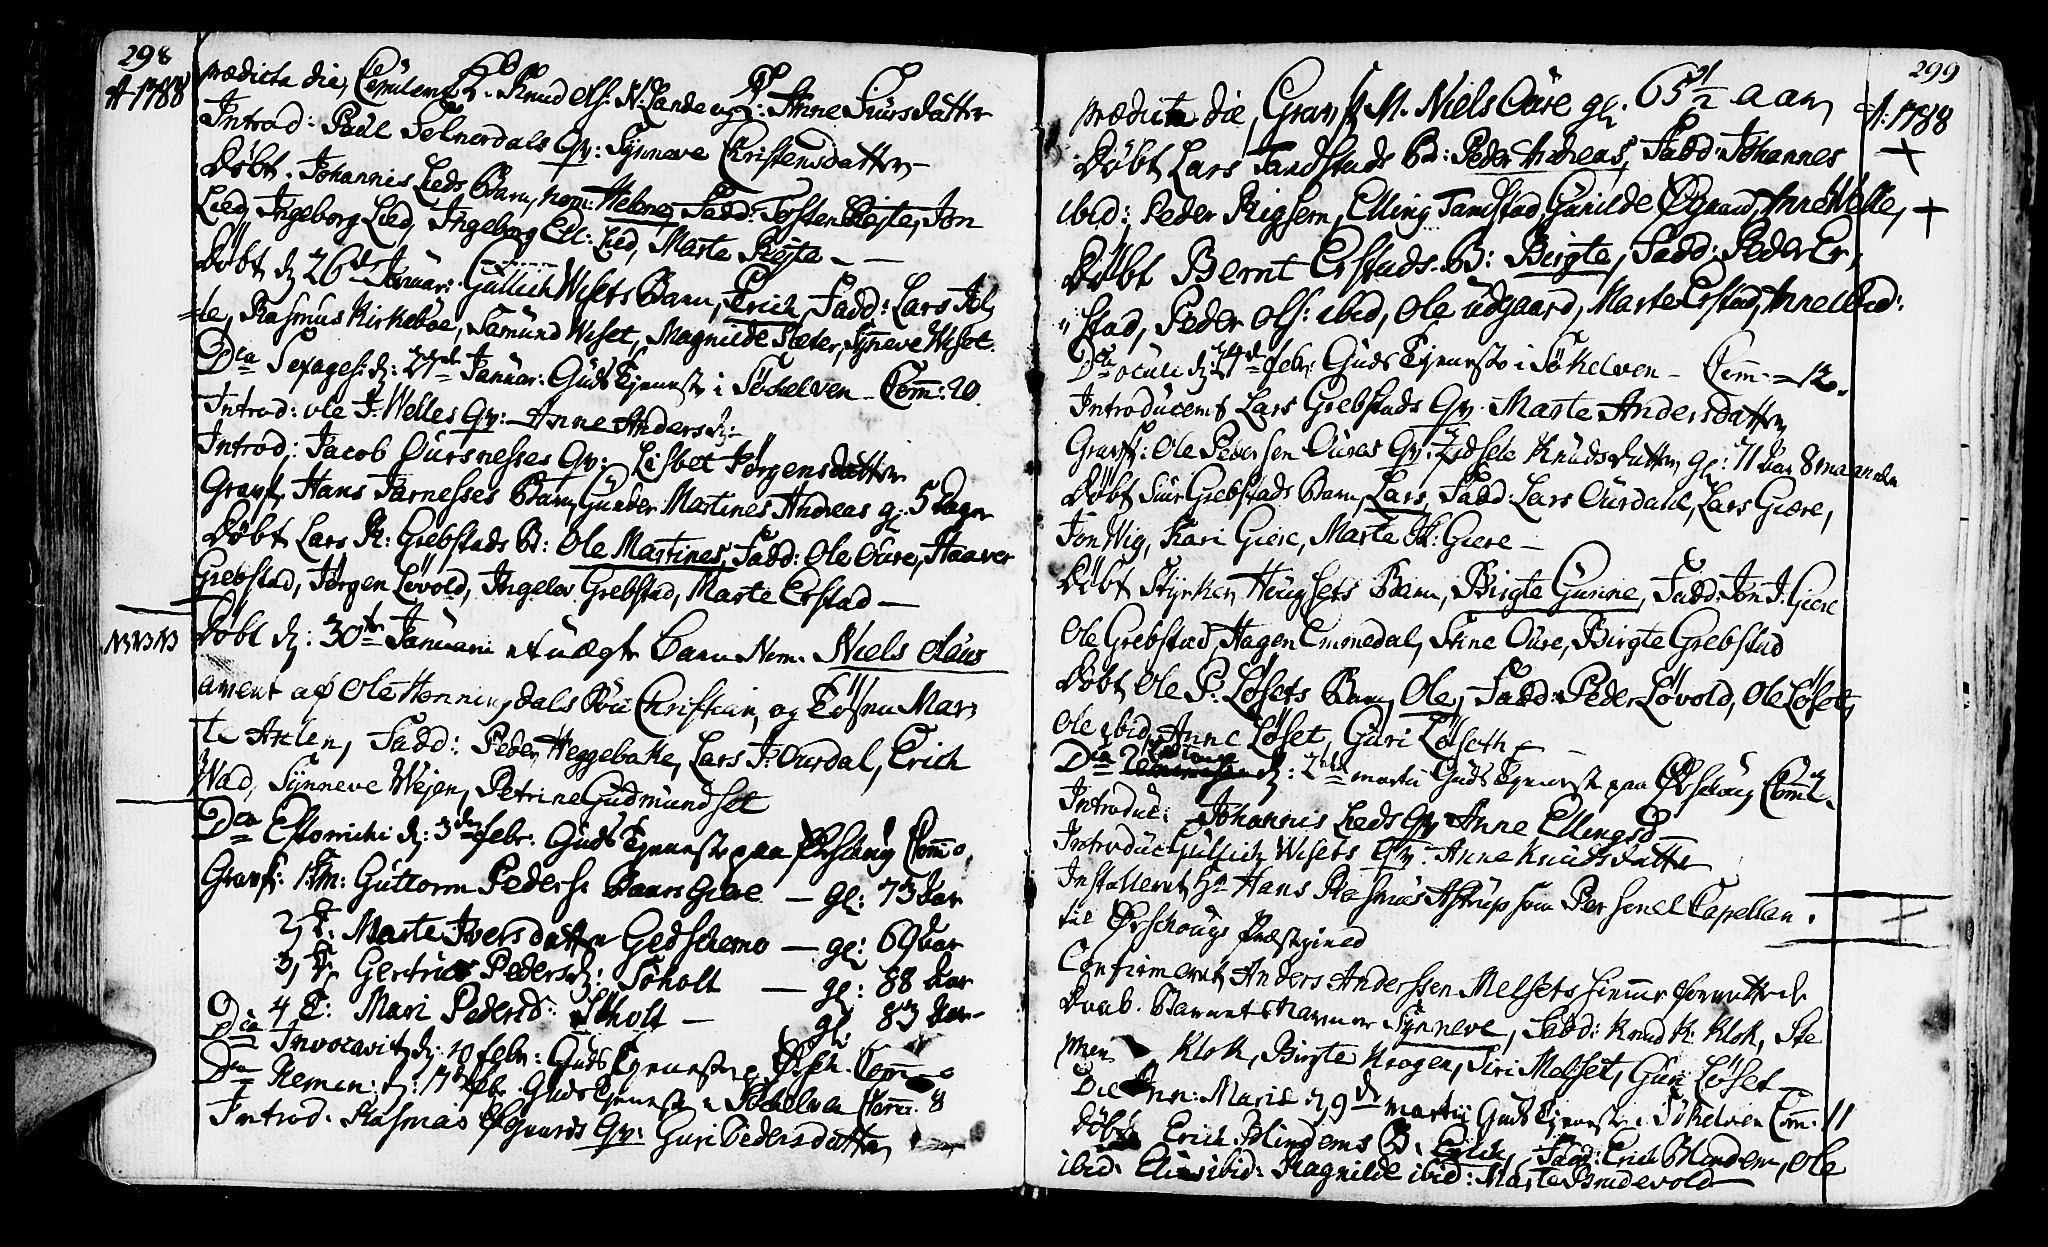 298
A 1788
prædicta die, Copulerede K. Knud Ols: N: Lande og P: Anne Siursdatter
Introd: Poul Selnerdals Qv: Synneve Christensdatter
Døbt. Johannis Lieds Barn, nom: Helene, Fadd: Torsten Røite, Jon
Lied, Ingeborg Lied, Ingeborg Ell: Lied, Marte Røite
Døbt d. 26de Januar: Gullich Wisets Barn, Erich, Fadd: Lars Tol
=le, Rasmus Kirkeboe, Samund Wiset, Magnilde Sæter, Synneve Wiset.
Dca Sexages: d: 27de Januar: Guds Tjeneste i Søchelven Com: 20
Introd: ole J. Welles Qv: Anne Andersd:
Introd: Jacob Oursnesses Qv: Lisbet Jørgensdatter
Gravf. Hans Tarnesses Barn, Gunder Martines Andreas gl. 5 dager
Døbt Lars R: Grebstads B: Ole Martines, Fadd: Ole Oure, Haaver
Grebstad, Jørgen Løvold, Angelas Grebstad, Marte Erstad
NB NB NB
Døbt d: 30te Januari et uægte barn Nom. Niels Olaus
avent af Ole Henningdals Søn Christian, og Tøsen Mar
te Anlen, Fadd: Peder Heggebakke, Lars J: Ourdal, Erich
Wad, Synneve Wejen, Petrine Gudmundset
Dca Estomihi d: 3de febr: Guds Tjeneste paa Ørschoug Com: 0
Gravf: 1. M: Guttorm Peders: Baars Giære gl: 73 Aar
2, K. Marte Iversdatter Gedschemo gl: 69 Aar
3, K. Gertrud Pedersd: Søholt gl: 88 Aar
4 K: Mari Pedersd: Søholt gl. 83 Aar
Dca Invocavit d: 10 febr: Guds Tjeneste p. Ørsch. Com 0
Dca Remin: d: 17de febr. Guds Tjeneste i Søkelven Com: 8
Introd. Rasmus Øfgaards Qv: Guri Pedersdatter
299
A: 1788
prædicta die, Gravf. M. Niels Oure gl. 65 1/2 aar
Døbt Lars Tandstads B: Peder Andreas, Fadd: Johannes
ibid: Peder Rigsem, Elling Tandstad, Gunilde Øgaard, Anne Welle,
Døbt Bernt Erstads B: Birgte, Fadd: Peder Er
stad, Peder Ols: ibid, Ole Udgaard, Marte Erstad, Anne ibid:
Dca oculi d: 24de febr: Guds Tjeneste i Søkelven Com: 12.
Introducerede Lars Grebstads Qv: Marte Andersdatter
Gravf: Ole Pedersen Oures Qv: Zidsele Knudsdatter gl: 71 aar 8 maaneder
Døbt Siur Grebstads Barn, Lars, Fadd: Lars Ourdahl, Lars Giære,
Jon Wig, Kari Giære, Marte K: Giære
Døbt Styrker Haugsets Barn, Birgte Gurine, Fadd: Jon J. Giære
Ole Grebstad, Hagen Emmedal, Stine Oure, Birgte Grebstad
Døbt Ole P. Løsets Barn, Ole, Fadd: Peder Løvold, Ole Løset,
Ole ibid, Anne Løset, Guri Løseth
Dca Lætare d: 2de martii Guds Tjeneste paa Ørschoug Com:
Introduc: Johannis Lieds Qv. Anne Ellingsd:
Introduc: Gullich Wisets Qv: Anne Knudsdatter
Installeret Hr Hans Rasmus Astrup som Personel Capellan
til Ørschougs Præstegield
Confirmeret Anders Anderssen Melsets hiemme forrettede
Daab. Barnets Navn er Synneve, Fadd: Knud K: Klok, Ste
phen Klok, Birgte Krogen, Siri Melset, Guri Løset
Die Ann: Mariæ d. 9de martii Guds Tjeneste i Søkelven Com: 11
Døbt Erich Blindems B: Eilich, Fadd: Erich Blindem, Ole
ibid: Elias ibid: Ragnilde ibid: Marte Brudevold